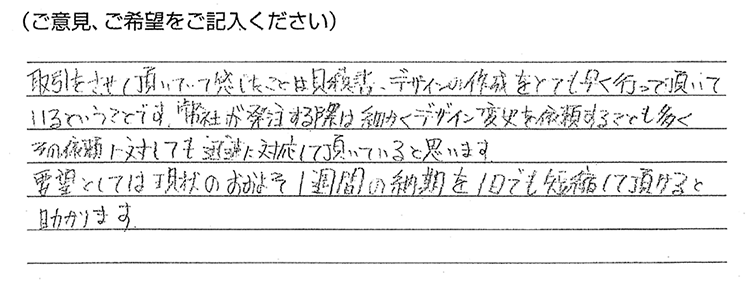 （ご意見、ご希望をご記入ください）
取引をさせて頂いていて感じたことは見積書、デザインの作成をとても早く行って頂いて
いるということです。弊社が発注する際は細かくデザイン変更を依頼することも多く
その依頼に対しても迅速に対応して頂いていると思います
要望としては現状のおおよそ1週間の納期を1日でも短縮して頂けると
助かります